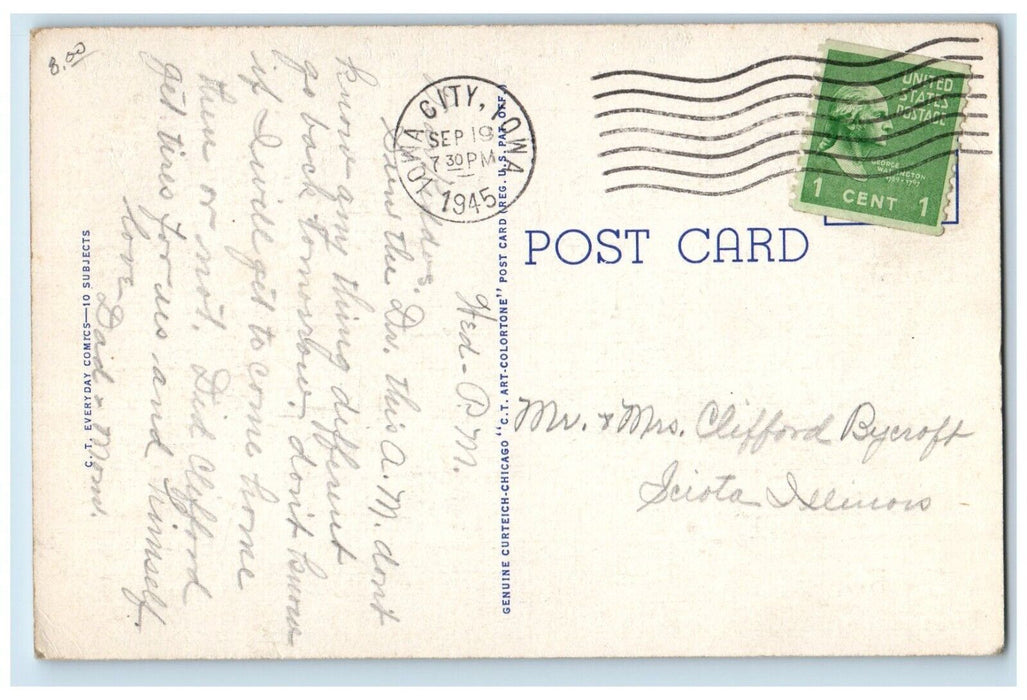 8.00
IOWA CITY, IOWA
SEP 19
7 30 PM
1945
UNITED
STATES
POSTAGE
GEORGE
WASHINGTON
1789-1797
1 CENT 1
POST CARD
Wed - P.M.
the Dr. this A.M. don't
know any thing different
go back tomorrow. don't know
if I will get to come home
then or not. Did Clifford
get tires for us and himself.
love
Dad & Mom.
Mr. & Mrs. Clifford Rycroft
Sciota Illinois
GENUINE CURTEICH-CHICAGO "C.T. ART-COLORTONE" POST CARD (REG. U.S. PAT. OFF.)
C. T. EVERYDAY COMICS—10 SUBJECTS